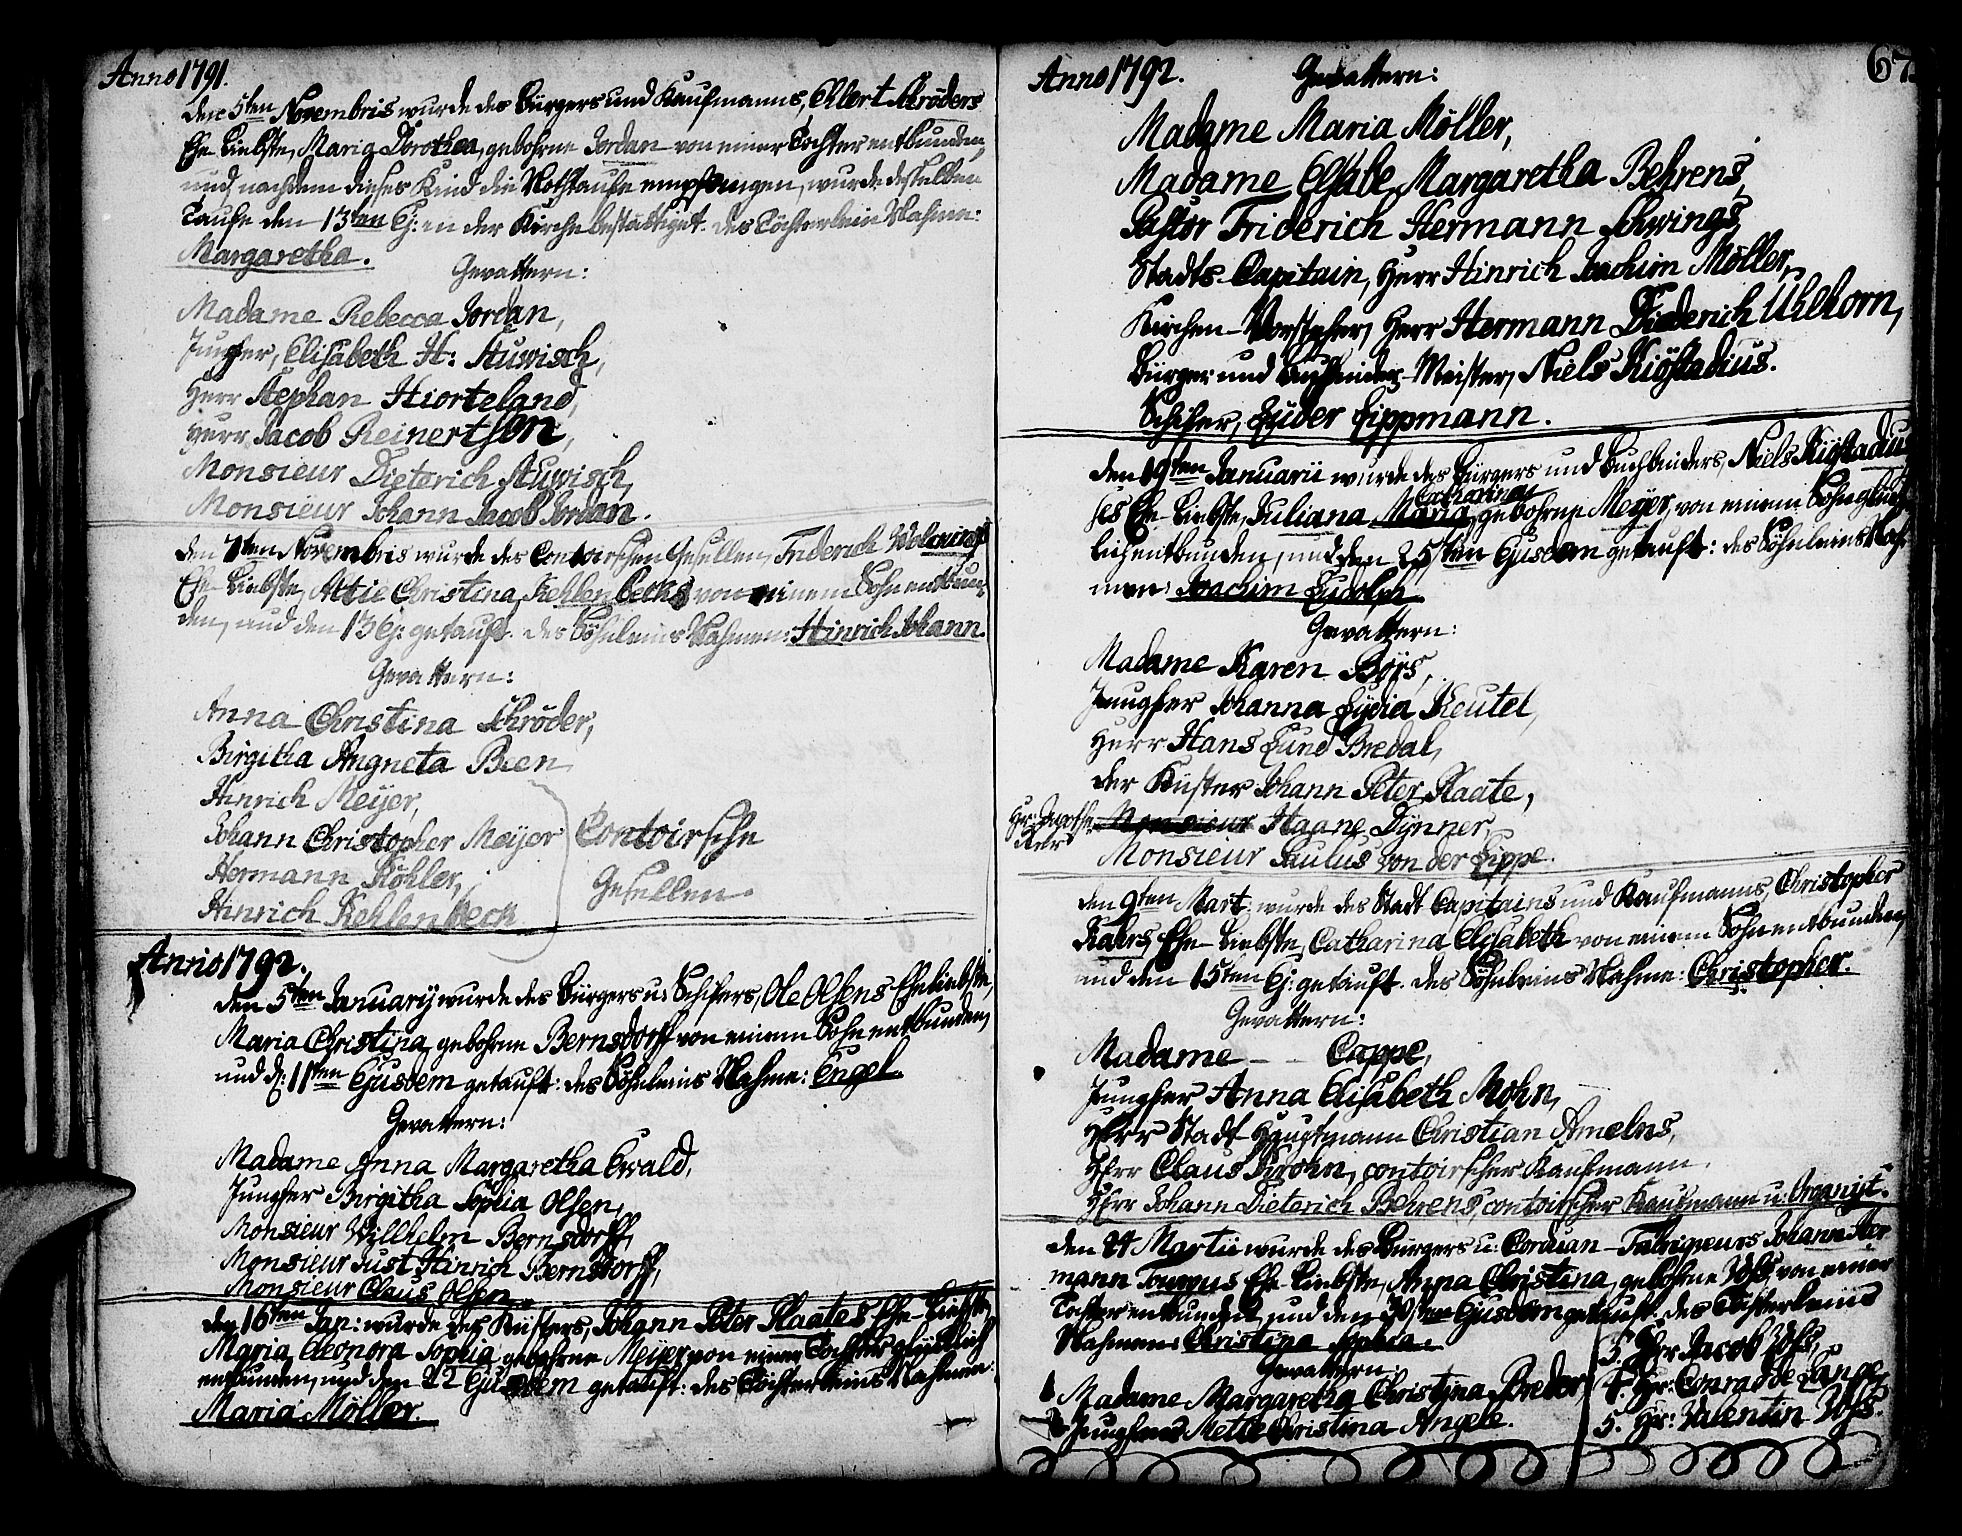 Anno 1791.
den 5ten Novembris wurde des Bürgers und Kaufmanns, Ehlert Schröders
Ehe-Liebste, Maria Dorothea, gebohrne Jordan von einer Tochter entbunden,
und, nachdem dieses Kind die Nothtaufe empfangen, wurde desselben
Taufe den 13ten Ej: in der Kirche bestättiget. des Töchterlein Nahme:
Margaretha.
Gevattern:
Madame Rebecca Jordan,
Jungfer, Elisabeth H: Stuwisch,
Herr Stephan Hiorteland,
Herr Jacob Reinertson,
Monsieur Dieterich Stuwisch,
Monsieur Johann Jacob Jordan.
den 7ten Novembris wurde des Contoirschen Gesellen, Friderich
Ehe-Liebste, Attie Christina Kehlenbecks von einem Sohn entbun-
den, und den 13 Ej: getauft. des Söhnleins Nahmen: Hinrich Johann.
Gevattern:
Anna Christina Schröder,
Birgitha Angneta Been
Hinrich Meijer,
Johann Christopher Meijer Contoirsche
Hermann Köhler, Gesellen.
Hinrich Kehlenbeck
Anno 1792.
den 5ten Januarij wurde des Bürgers u: Schiffers, Ole Olsens Eheliebste,
Maria Christina, gebohrne Bernsdorff von einem Sohn entbunden,
und d: 11ten Ejusdem getauft: des Söhnleins Nahme: Engel.
Gevattern:
Madame Anna Margaretha Ewald,
Jungfer Birgitha Sophia Olsen,
Monsieur Willhelm Bernsdorff,
Monsieur Just Hinrich Bernsdorff,
Monsieur Claus Olsen.
den 16ten Jan: wurde des Küsters, Johann Peter Plaates Ehe-Liebste
Maria Eleonora Sophia gebohrne Meijer von einer Tochter glücklich
entbunden, und den 22 Ejusdem getauft: des Töchterleins Nahmen:
Maria Möller.
67.
Anno 1792. Gevattern:
Madame Maria Möller,
Madame Elsabe Margaretha Behrens,
Pastor Friderich Hermann Schwings,
Stadts-Capitain, Herr Hinrich Joachim Möller,
Kirchen-Vorsteher, Herr Hermann Diederich Uhlhorn,
Bürger und Buchbinder-Meister, Niels Kiöstadius.
Schiffer, Lüder Lippmann.
den 19ten Januarii wurde des Bürgers und Buchbinders, Niels Kiöstadiu
ses Ehe-Liebste, Juliana Maria Catharina gebohrne Meyer, von einem Sohn glück-
lich entbunden, und den 25sten Ejusdem getauft: des Söhnleins Nah-
men: Joachim Ludolph.
Gevattern:
Madame Karen Böys,
Jungfer Johanna Lydia Reutel,
Herr Hans Lund Bredal,
der Küster Johann Peter Plaate,
Hr: Apothe- Monsieur Haane Dynner,
ker
Monsieur Paulus von der Lippe.
den 9ten Mart: wurde des Stadt Capitains und Kaufmanns, Christopher
Kahrs Ehe-Liebste, Catharina Elisabeth von einem Sohn entbunden,
und den 15ten Ej: getauft. des Söhnleins Nahme: Christopher.
Gevattern:
Madame - - Cappe,
Jungfer Anna Elisabeth Mohn,
Herr Stadt-Hauptmann Christian Amelns,
Herr Claus Krohn, contoirscher Kaufmann.
Herr Johann Dieterich Behrens, contoirscher Kaufmann u: Organist.
den 24 Martii wurde des Bürgers u: Corduan-Fabriqeurs Johann Her
mann Ehe-Liebste, Anna Christina, gebohrne Voss, von einer
Tochter entbunden, und den 30sten Ejusdem getauft. des Töchterleins
Nahmen: Christina Sophia.
Gevattern:
1 Madame Margaretha Christina Breder,
2 Jungfer Mette Christina Angele.
3. Herr Jacob Voss,
4. Hr: Conrad de Lange,
5. Hr: Valentin Voss.